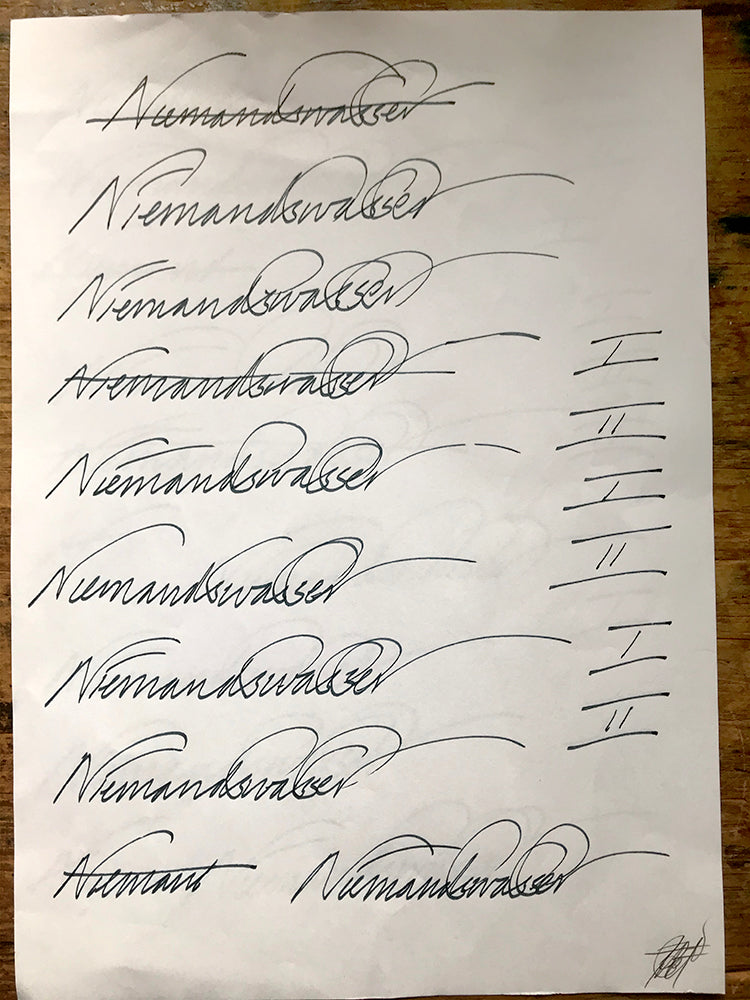 Niemandswasser
Niemandswasser
Niemandswasser
Niemandswasser
I
II
Niemandswasser
I
Niemandswasser
II
Niemandswasser
I
II
Niemandswasser
Niemans Niemandswasser